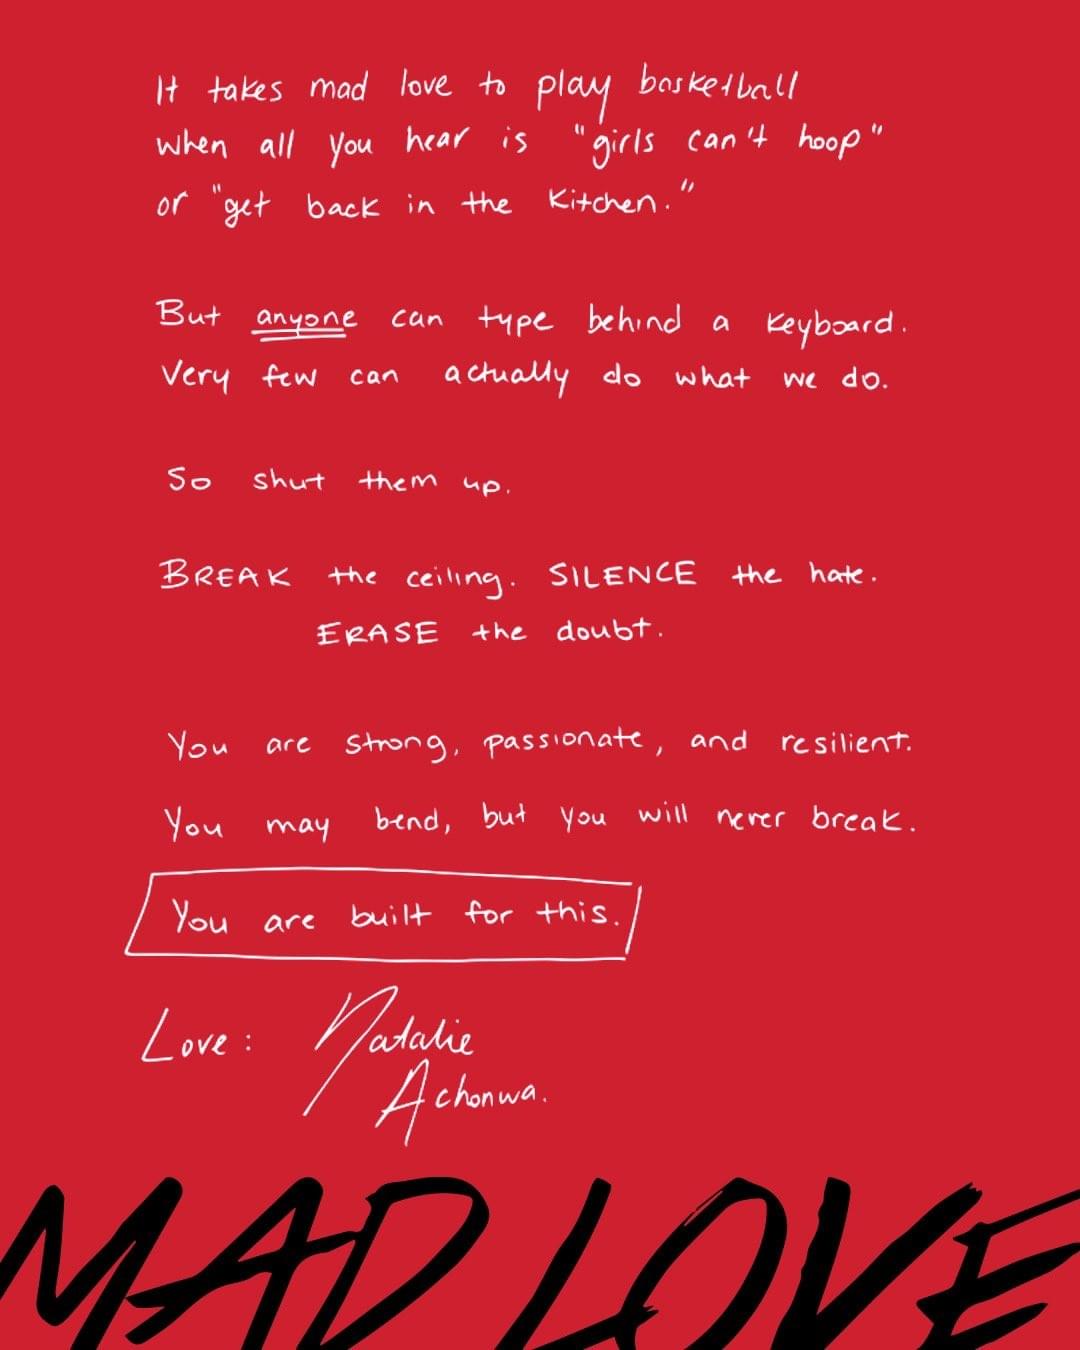 It takes mad love to play basketball
when all you hear is "girls can't hoop"
or "get back in the kitchen."
But anyone can type behind a keyboard.
Very few can actually do what we do.
So shut them up.
BREAK the ceiling. SILENCE the hate.
ERASE the doubt.
You are strong, passionate, and resilient.
You may bend, but you will never break.
You are built for this.
Love: Natalie
Achonwa.
MAD LOVE